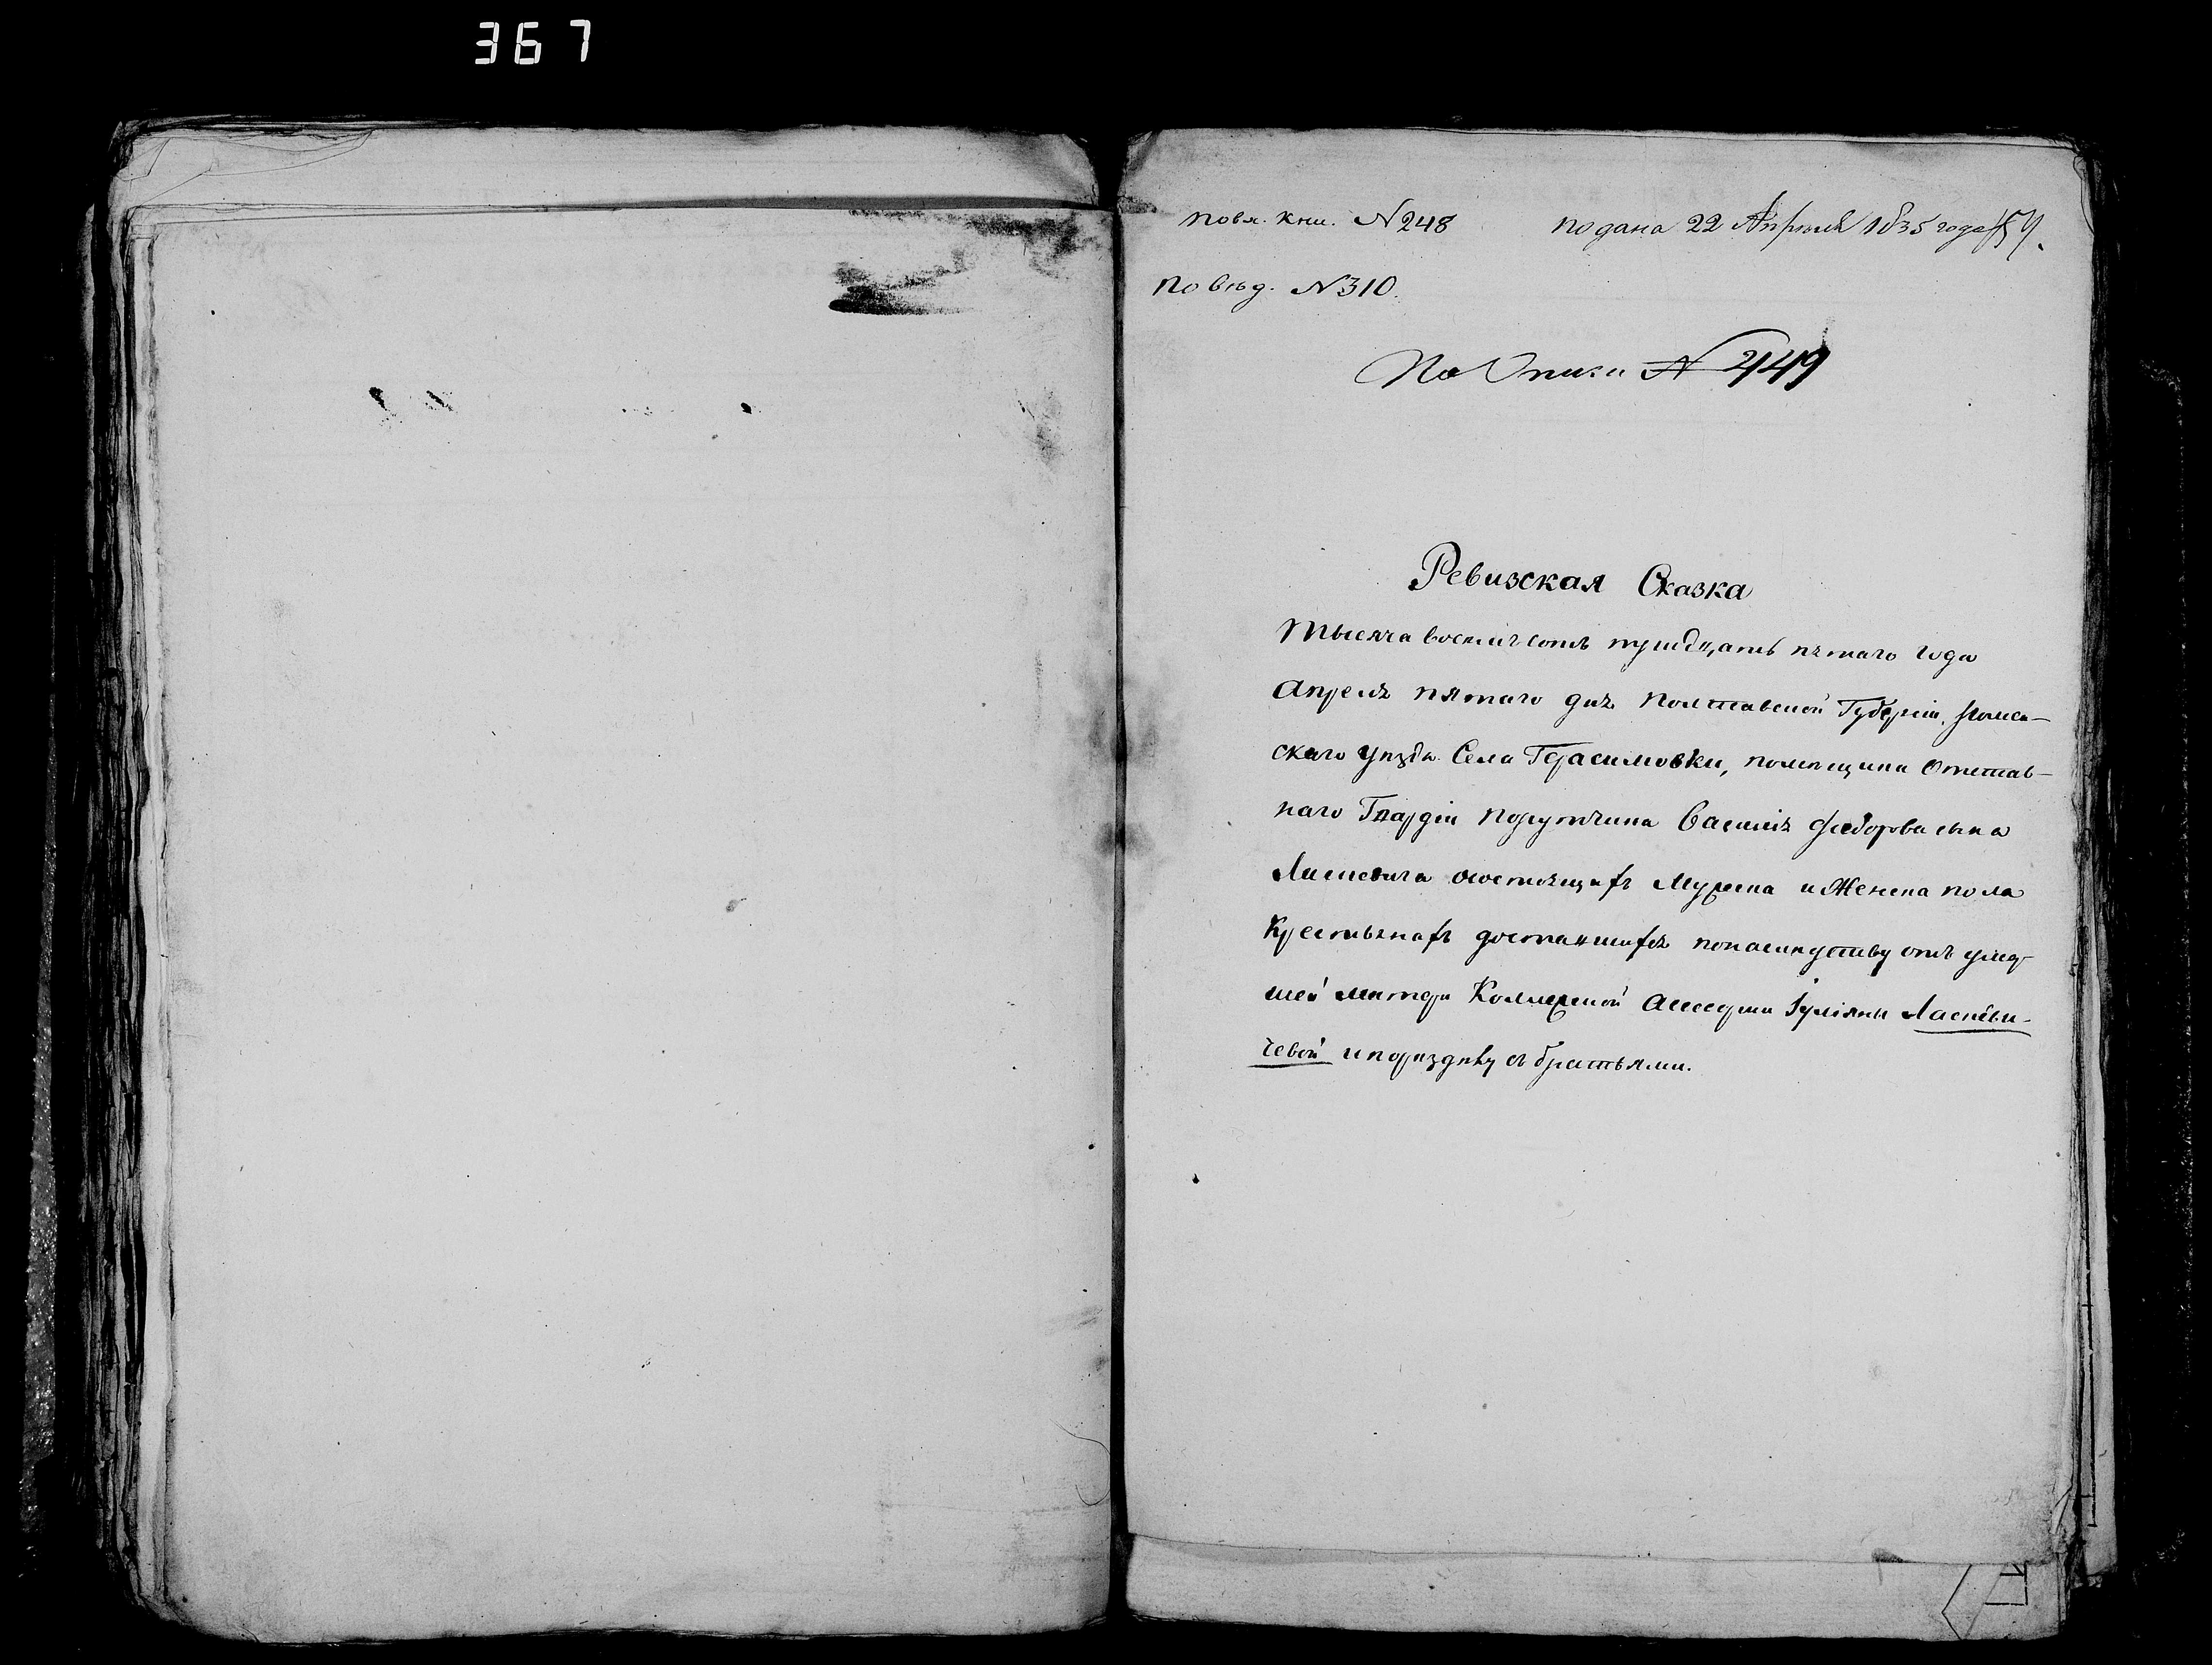 367
по вх. кни. №248 подана 22 Апреля 1835 года
по вѣд. №310.
По Описи № 449
Ревизская Сказка
Тысяча восемъсотъ тридцать пятаго года
Апреля пятаго дня Полтавской Губерніи, Ромен-
скаго уѣзда Села Герасимовки, помѣщика Отстав-
наго Гвардіи Порутчика Василія Федорова сына
Ласкевича осостоящихъ Мужска и Женска пола
Крестьянахъ доставшихся понаслидству отъ умер-
шей матери Коллежской Асессорши Іуліяны Ласкеви-
чевой ипораздѣлу съ братьями.